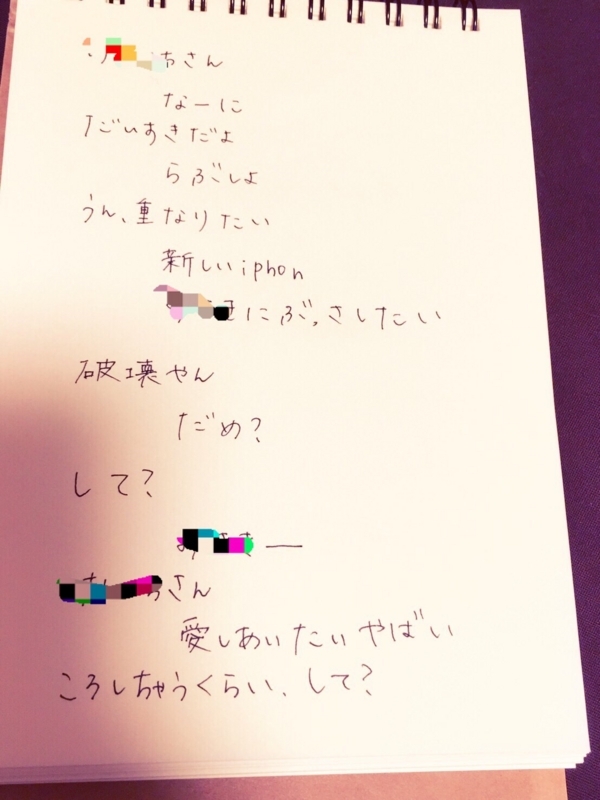 さん
なーに
だいすきだよ
らぶしよ
うん、重なりたい
新しいiphon
にぶっさしたい
破壊やん
だめ？
して？
ー
さん
愛しあいたいやばい
ころしちゃうくらい、して？